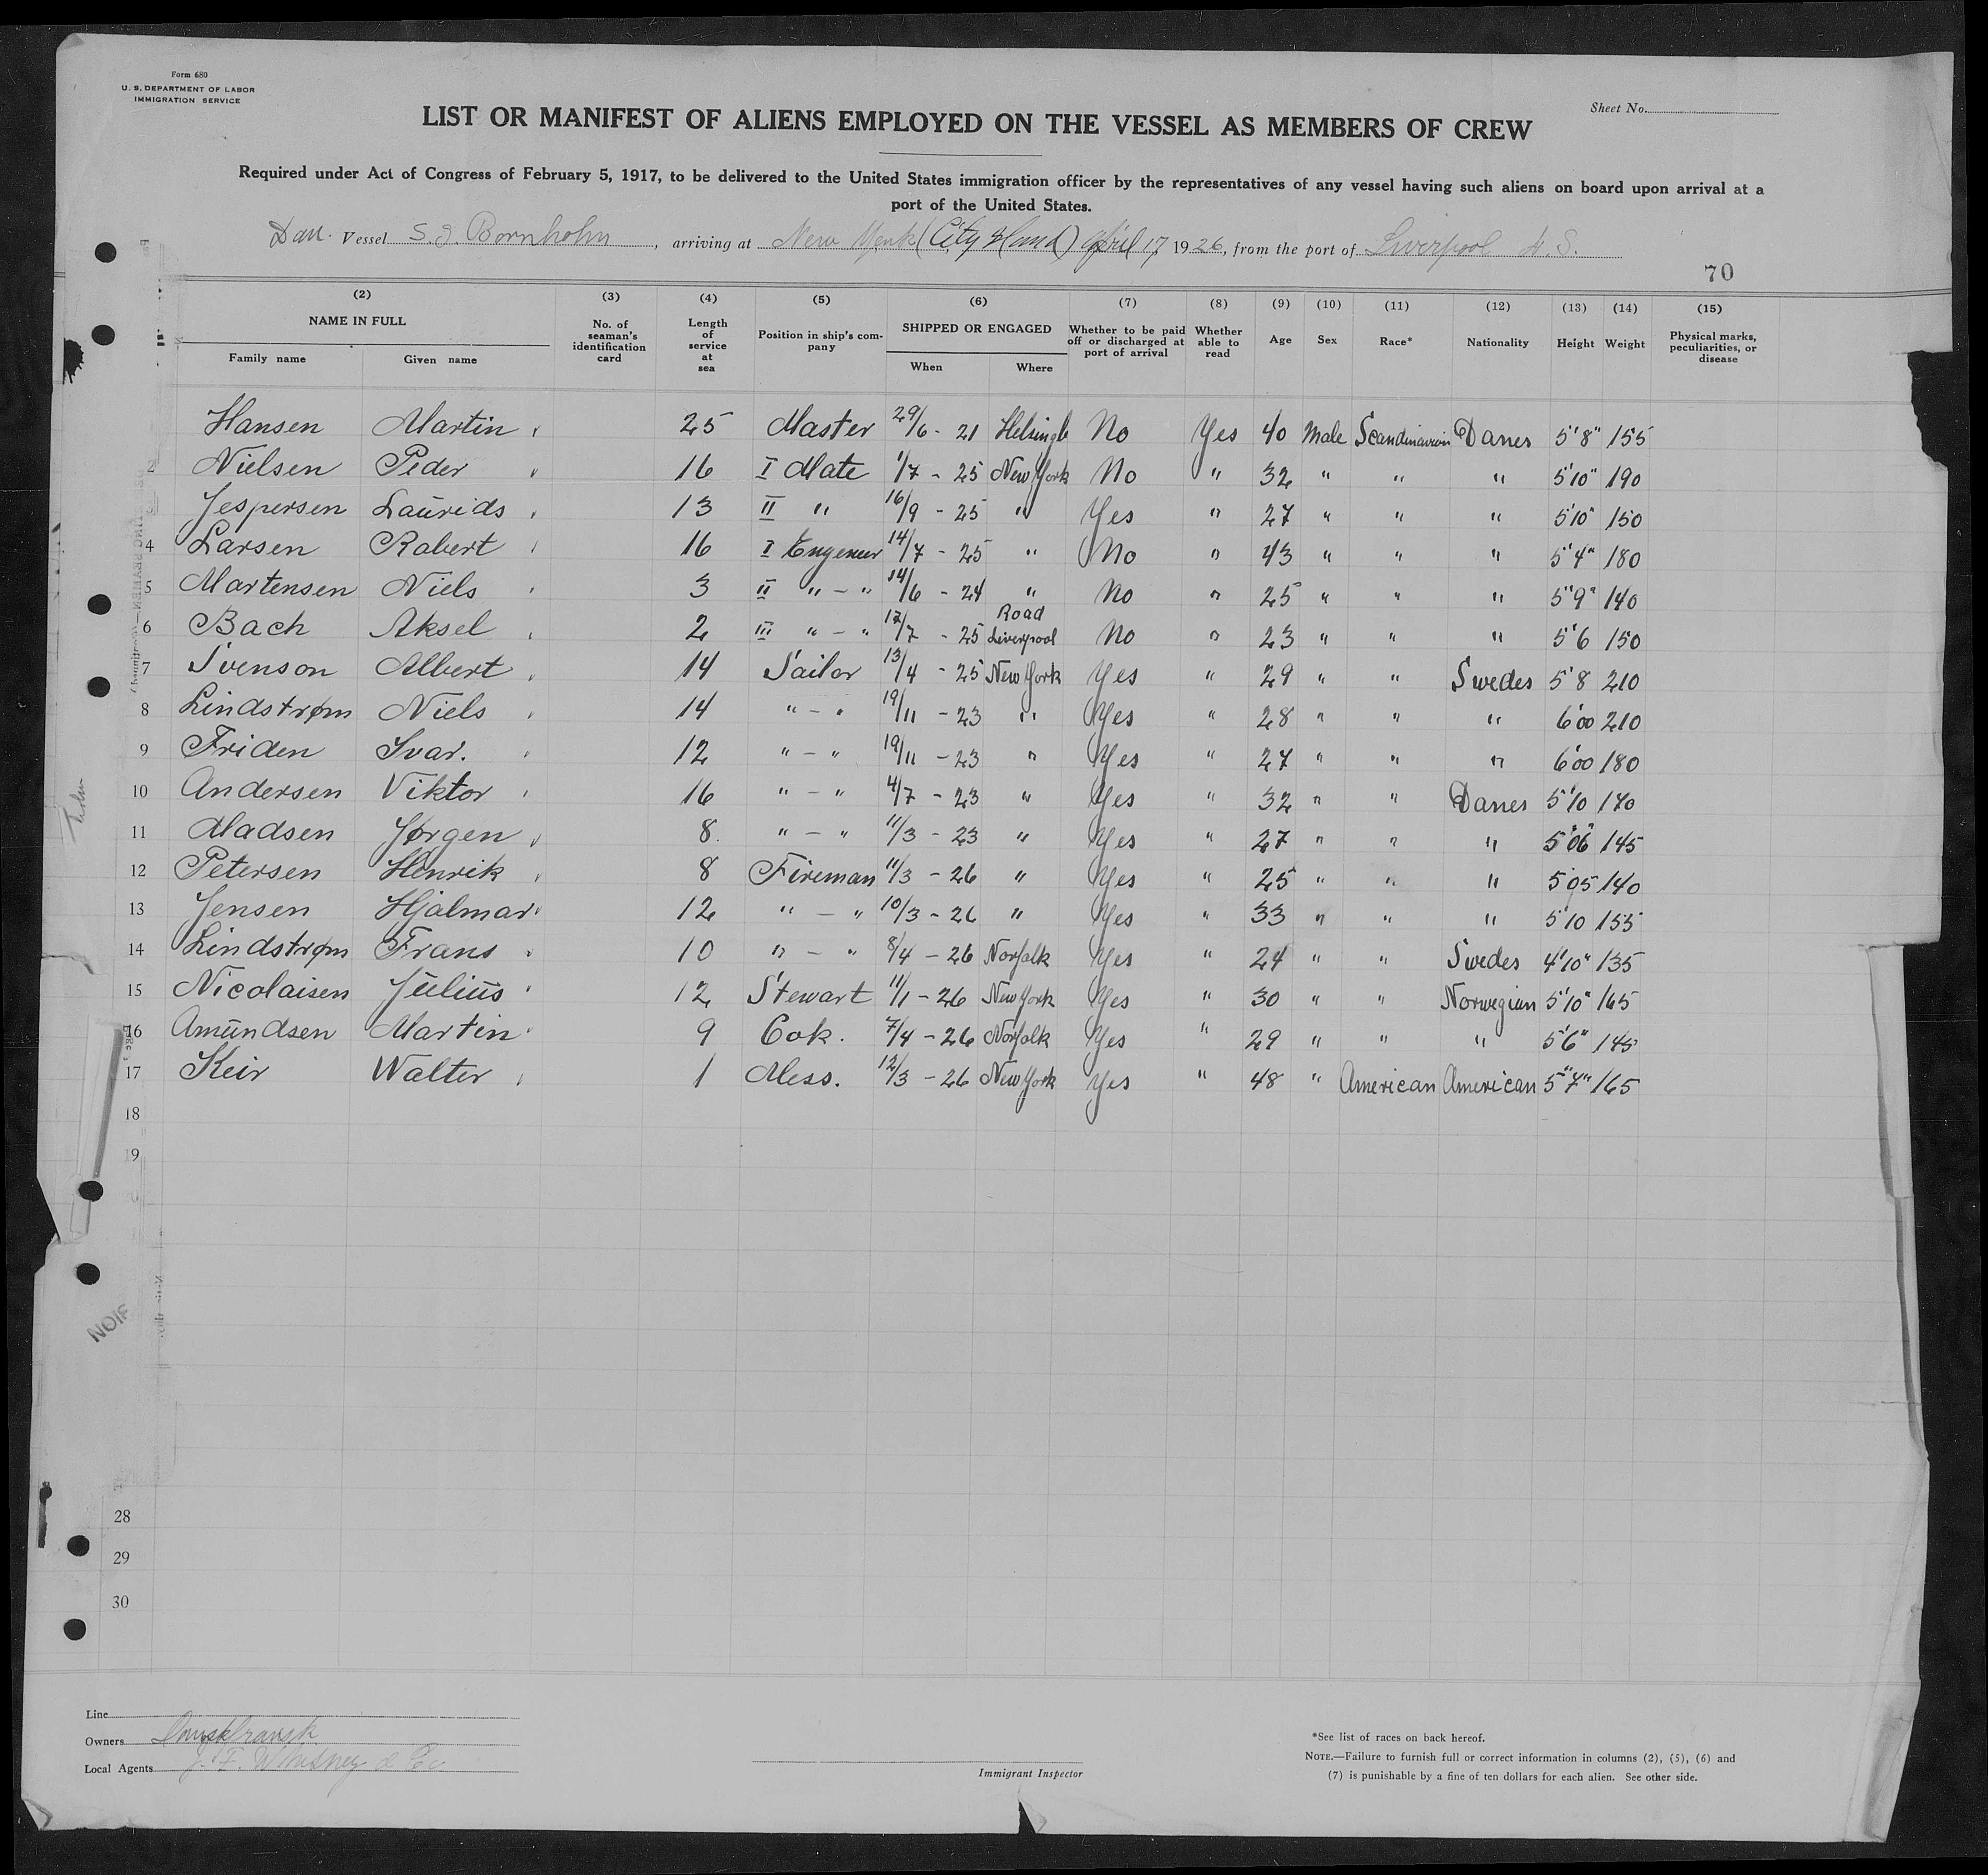 Form 680
U. S. DEPARTMENT OF LABOR
IMMIGRATION SERVICE
Sheet No.
LIST OR MANIFEST OF ALIENS EMPLOYED ON THE VESSEL AS MEMBERS OF CREW
Required under Act of Congress of February 5, 1917, to be delivered to the United States immigration officer by the representatives of any vessel having such aliens on board upon arrival at a
port of the United States.
Dan. Vessel S.S. Bornholm, arriving at New York (City Island) April 17, 1926, from the port of Liverpool N.S.
70
(2) (3) (4) (5) (6) (7) (8) (9) (10) (11) (12) (13) (14) (15)
NAME IN FULL No. of seaman's identification card Length of service at sea Position in ship's company SHIPPED OR ENGAGED Whether to be paid off or discharged at port of arrival Whether able to read Age Sex Race* Nationality Height Weight Physical marks, peculiarities, or disease
Family name Given name When Where
Hansen Martin 25 Master 29/6 - 21 Helsingb No Yes 40 Male Scandinavian Danes 5'8" 155
2 Nielsen Peder 16 I Mate 1/7 - 25 New York No " 32 " " " 5'10" 190
Jespersen Laurids 13 II " 16/9 - 25 " Yes " 27 " " " 5'10" 150
4 Larsen Robert 16 I Engeneer 14/7 - 25 " No " 43 " " " 5'4" 180
5 Martensen Niels 3 II " - " 14/6 - 24 " No " 25 " " " 5"9" 140
6 Bach Aksel 2 III " - " 12/7 - 25 Road Liverpool No " 23 " " " 5'6 150
7 Svenson Albert 14 Sailor 13/4 - 25 New York Yes " 29 " " Swedes 5'8 210
8 Lindstrøm Niels 14 " - " 19/11 - 23 " Yes " 28 " " " 6'00 210
9 Friden Ivar. 12 " - " 19/11 - 23 " Yes " 27 " " " 6'00 180
10 Andersen Viktor 16 " - " 4/7 - 23 " Yes " 32 " " Danes 5'10 170
11 Madsen Jørgen 8. " - " 11/3 - 23 " Yes " 27 " " " 5'06" 145
12 Petersen Henrik 8 Fireman 11/3 - 26 " Yes " 25 " " " 5'05 140
13 Jensen Hjalmar 12 " - " 10/3 - 26 " Yes " 33 " " " 5'10 155
14 Lindstrøm Frans 10 " - " 8/4 - 26 Norfolk Yes " 24 " " Swedes 4'10" 135
15 Nicolaisen Julius 12 Stewart 11/1 - 26 New York Yes " 30 " " Norwegian 5'10" 165
16 Amundsen Martin 9 Cok. 7/4 - 26 Norfolk Yes " 29 " " " 5'6" 145
17 Keir Walter 1 Mess. 12/3 - 26 New York Yes " 48 " American American 5"7" 165
18
19
28
29
30
NOIF
Line
Owners
Local Agents J. F. Whitney & Co.
Immigrant Inspector
*See list of races on back hereof.
NOTE.—Failure to furnish full or correct information in columns (2), (5), (6) and
(7) is punishable by a fine of ten dollars for each alien. See other side.